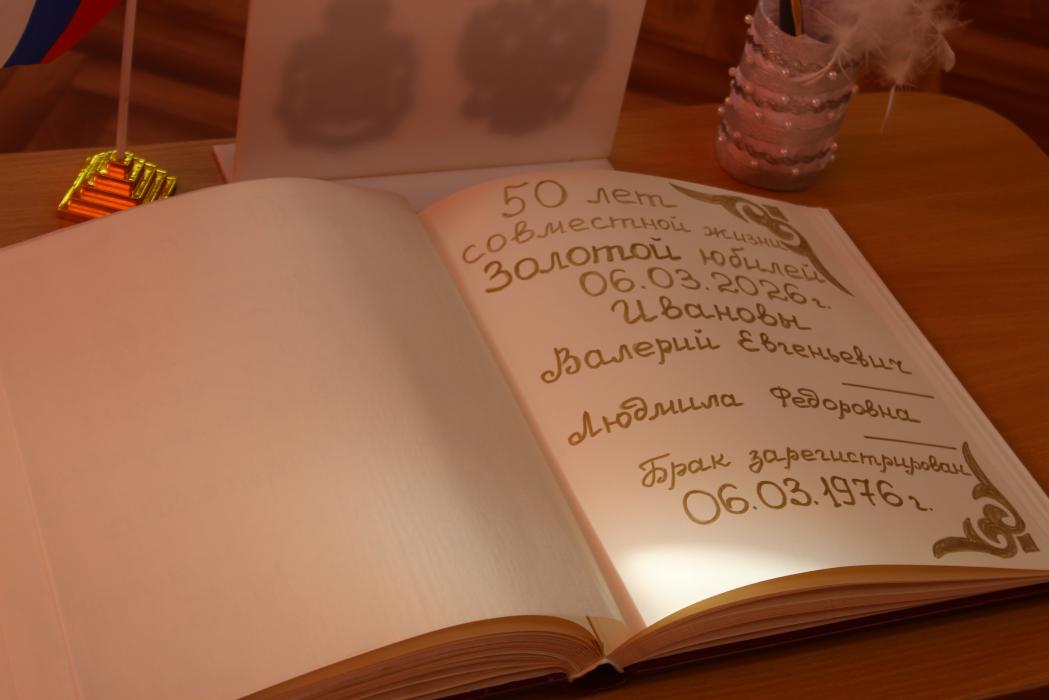 50 лет
совместной жизни
Золотой юбилей
06.03.2026г.
Ивановы
Валерий Евгеньевич
Людмила Федоровна
Брак зарегистрирован
06.03.1976г.